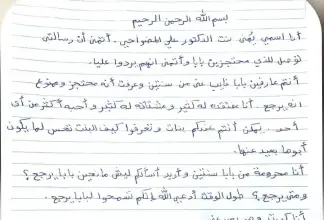 بسم الله الرحمن الرحيم
أنا اسمي يُمنى بنت الدكتور علي المضواحي. أتمنى أن رسالتي
توصل للذي محتجزين بابا وأتمنى انهم يردوا عليا.
أنتم عارفين بابا غايب عني من سنتين وعرفت أنه محتجز وممنوع
انه يرجع. أنا عتقده له كثير ومشتاقه له كثير وأحبه أكثر من أي
أحد. يمكن أنتم عندكم بنات وتعرفوا كيف البنت تحس لما يكون
أبوها بعيد عنها.
أنا محرومة من بابا سنتين وأريد أسألكم ليش مانعين بابا يرجع؟
ومتى يرجع؟ طول الوقت أدعي الله إنكم تسمحوا لبابا يرجع.